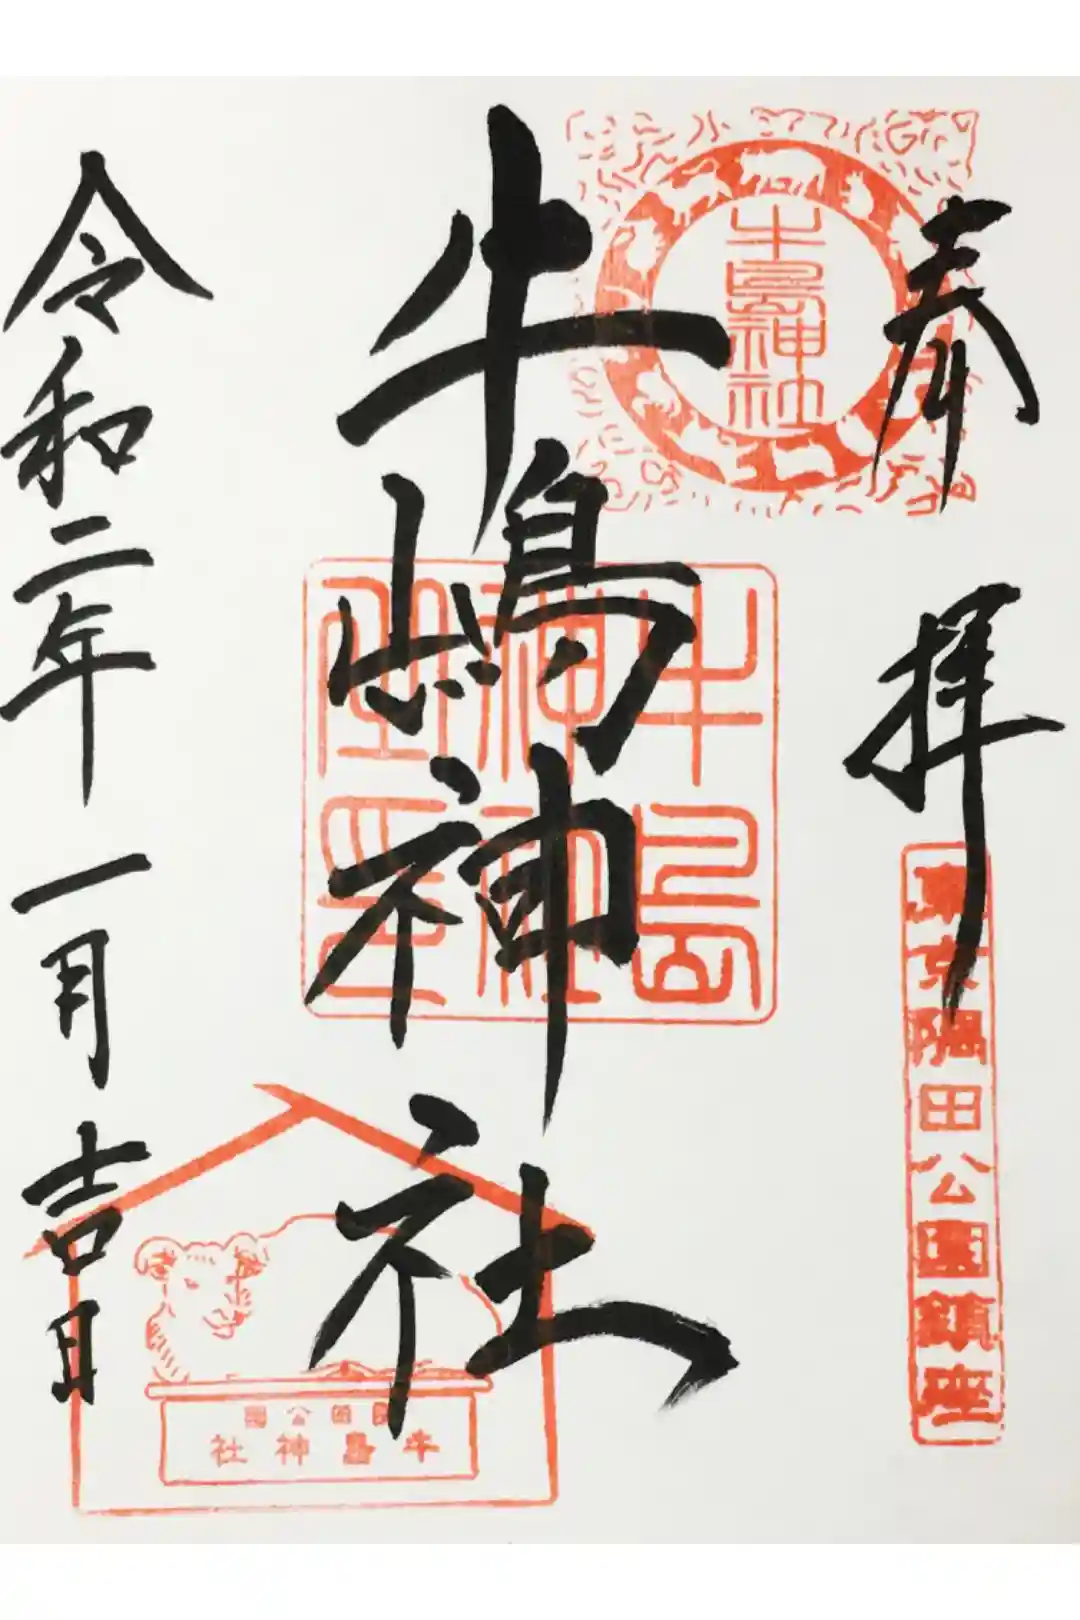 奉拝
東京隅田公園鎮座
牛島神社
牛嶋神社
牛島
神社
令和二年一月吉日
隅田公園
牛島神社